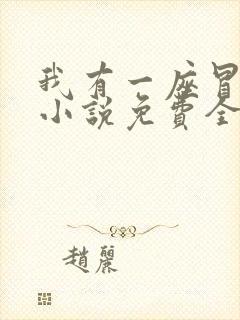 我有一座冒
小说免費全
趙麗